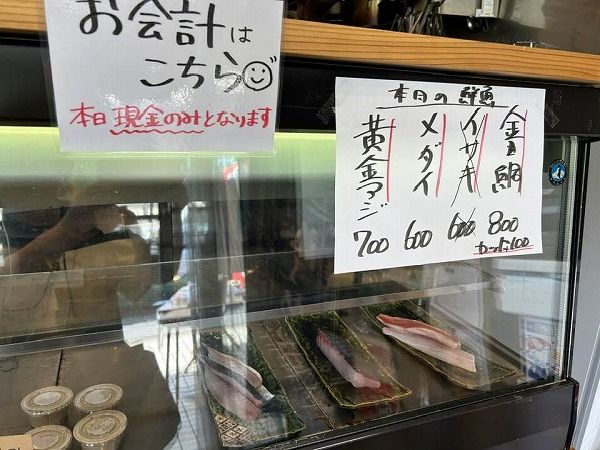 お会計は
こちら
本日現金のみとなります
本日の鮮魚
金目鯛
イサキ
メダイ
黄金アジ
800
600
600
700
カード+100